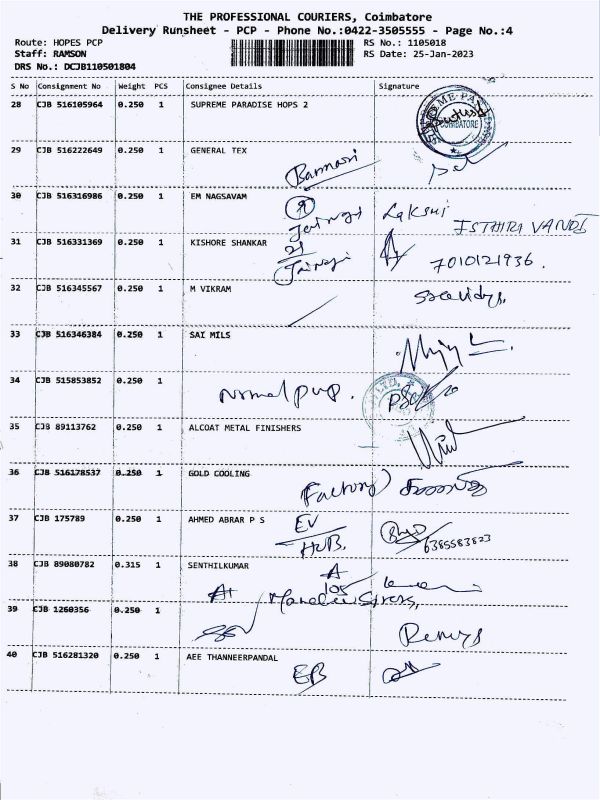 THE PROFESSIONAL COURIERS, Coimbatore
Delivery Runsheet - PCP - Phone No.:0422-3505555 - Page No.:4
Route: HOPES PCP RS No.: 1105018
Staff: RAMSON RS Date: 25-Jan-2023
DRS No.: DCJB110501804
S No Consignment No Weight PCS Consignee Details Signature
28 CJB 516105964 0.250 1 SUPREME PARADISE HOPS 2
COIMBATORE
29 CJB 516222649 0.250 1 GENERAL TEX
Bannari
30 CJB 516316986 0.250 1 EM NAGSAVAM
Lakshmi
ISTHIRI VANDI
31 CJB 516331369 0.250 1 KISHORE SHANKAR
21
7010121936.
32 CJB 516345567 0.250 1 M VIKRAM
33 CJB 516346384 0.250 1 SAI MILS
34 CJB 515853852 0.250 1
Normal pvp.
35 CJB 89113762 0.250 1 ALCOAT METAL FINISHERS
36 CJB 516178537 0.250 1 GOLD COOLING
Factory
37 CJB 175789 0.250 1 AHMED ABRAR P S
EV
HUB.
6385583823
38 CJB 89080782 0.315 1 SENTHILKUMAR
A
105
A1
39 CJB 1260356 0.250 1
Remya
40 CJB 516281320 0.250 1 AEE THANNEERPANDAL
EB